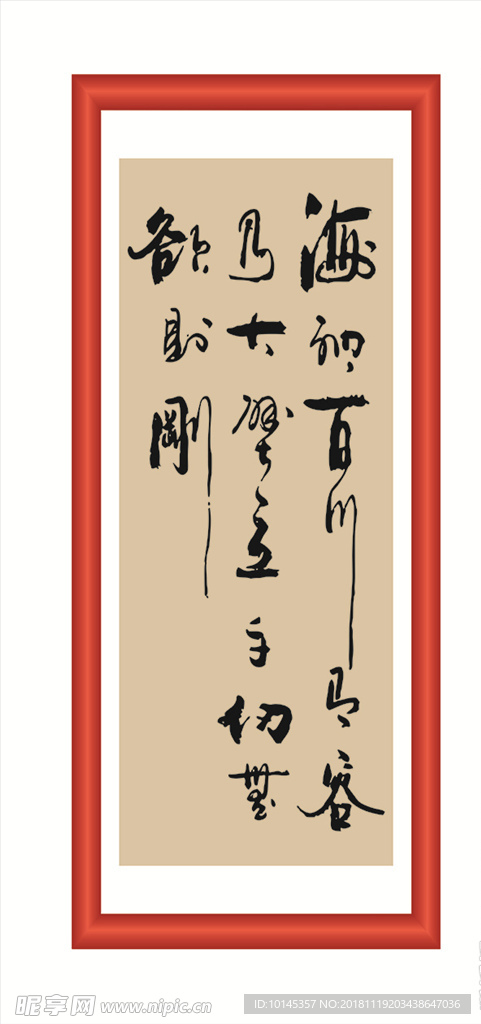 海納百川有容
乃大壁立千仞無
欲則剛
昵享网 www.nipic.cn
ID:10145357 NO:20181119203438647036